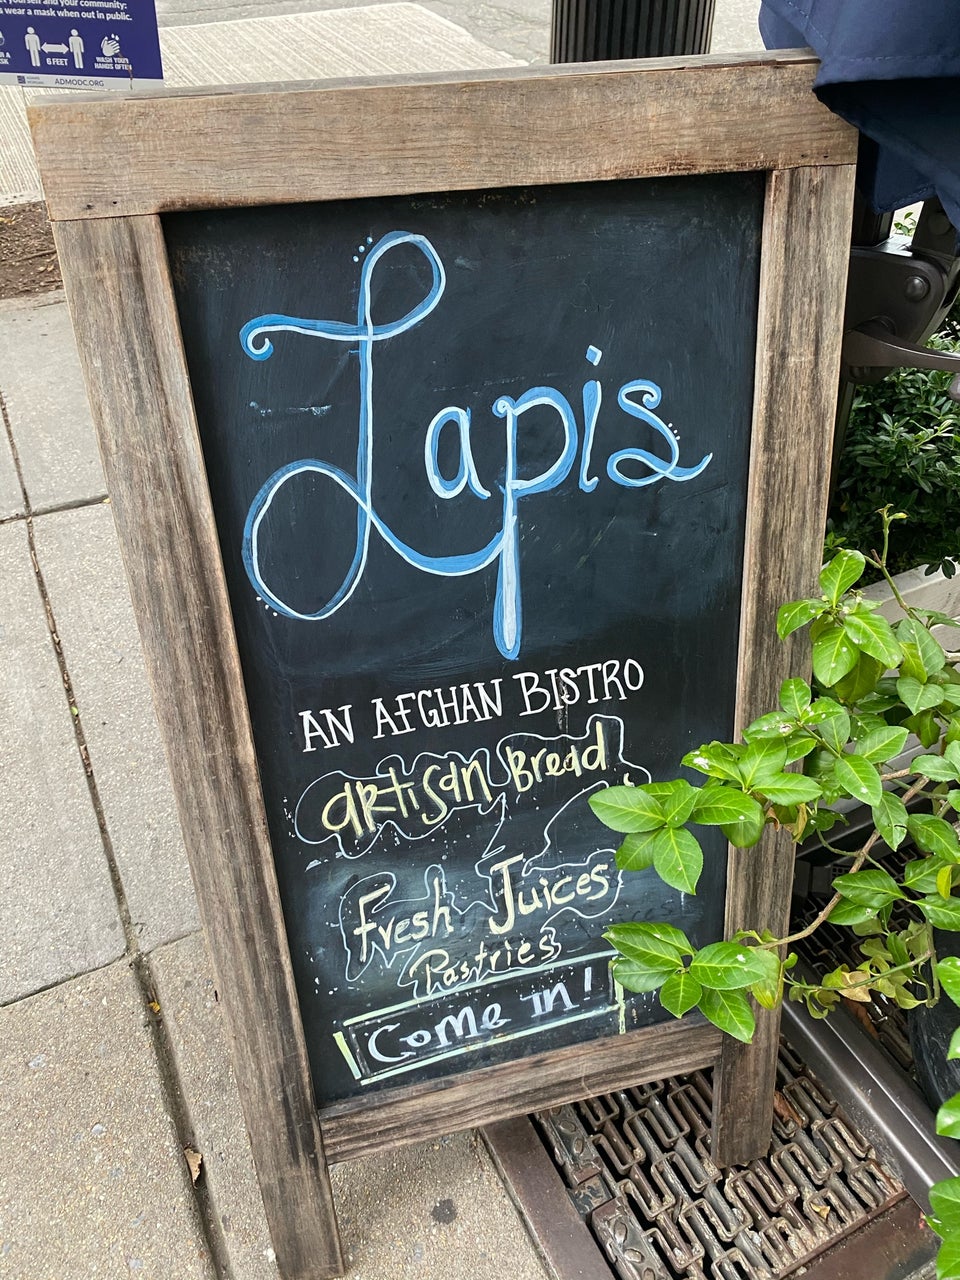 yourself and your community:
wear a mask when out in public.
6 FEET
WASH YOUR
HANDS OFTEN
ADMODC.ORG
Lapis
AN AFGHAN BISTRO
artisan Bread
Fresh Juices
Pastries
Come in!